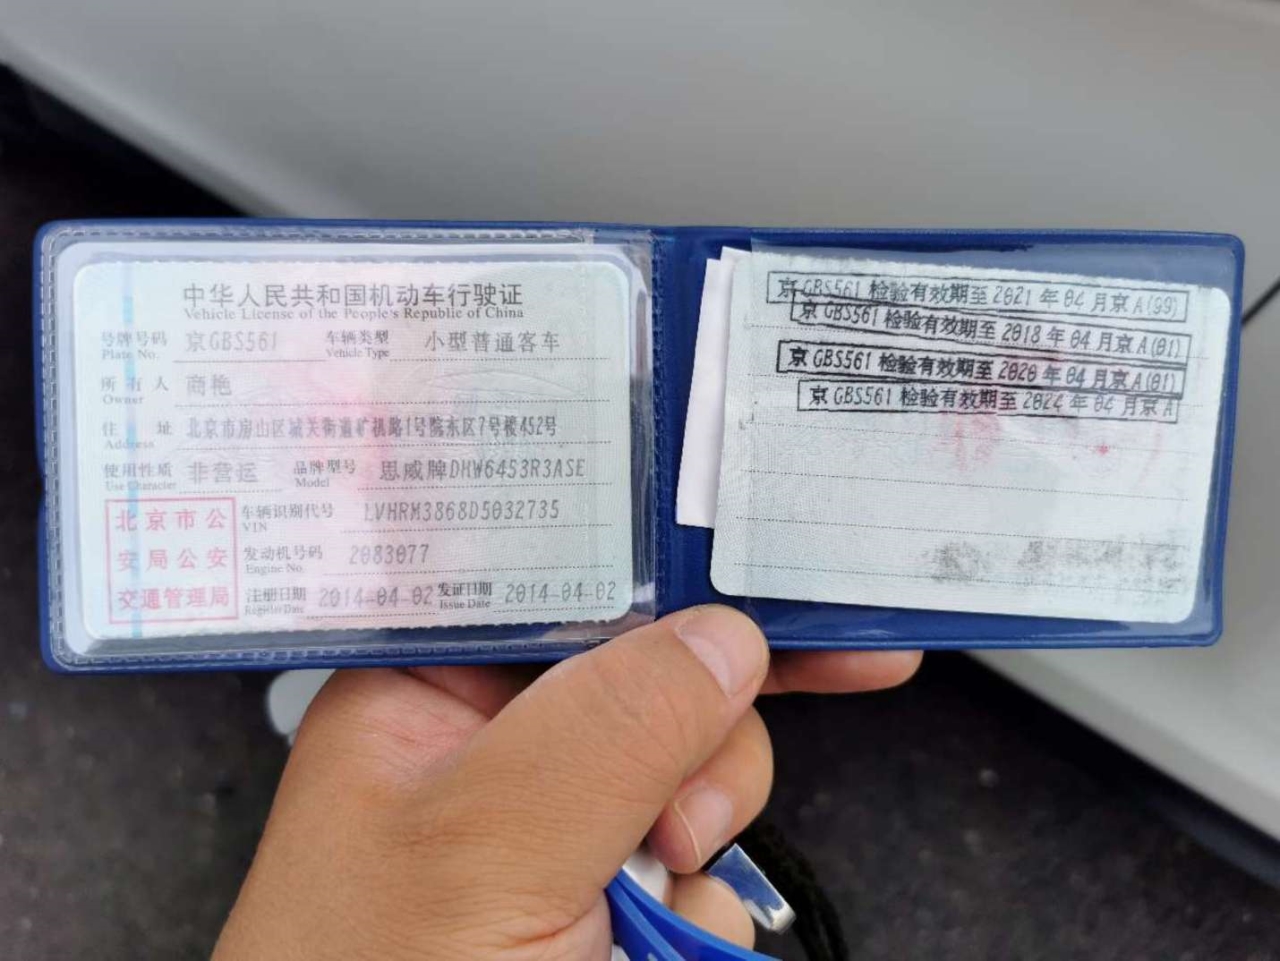 中华人民共和国机动车行驶证
Vehicle License of the People's Republic of China
号牌号码 京GBS561 车辆类型 小型普通客车
Plate No. Vehicle Type
所有人 商艳
Owner
住址 北京市房山区城关街道矿机路1号院东区7号楼452号
Address
使用性质 非营运 品牌型号 思威牌DHW6453R3ASE
Use Character Model
北京市公
安局公安
交通管理局
车辆识别代号 LVHRM3868D5032735
VIN
发动机号码 2083077
Engine No.
注册日期 2014-04-02 发证日期 2014-04-02
Register Date Issue Date
京GBS561 检验有效期至 2021 年 04 月京A(99)
京GBS561 检验有效期至 2018 年 04 月京A(01)
京GBS561 检验有效期至 2020 年 04 月京A(01)
京GBS561 检验有效期至 2024 年 04 月京A